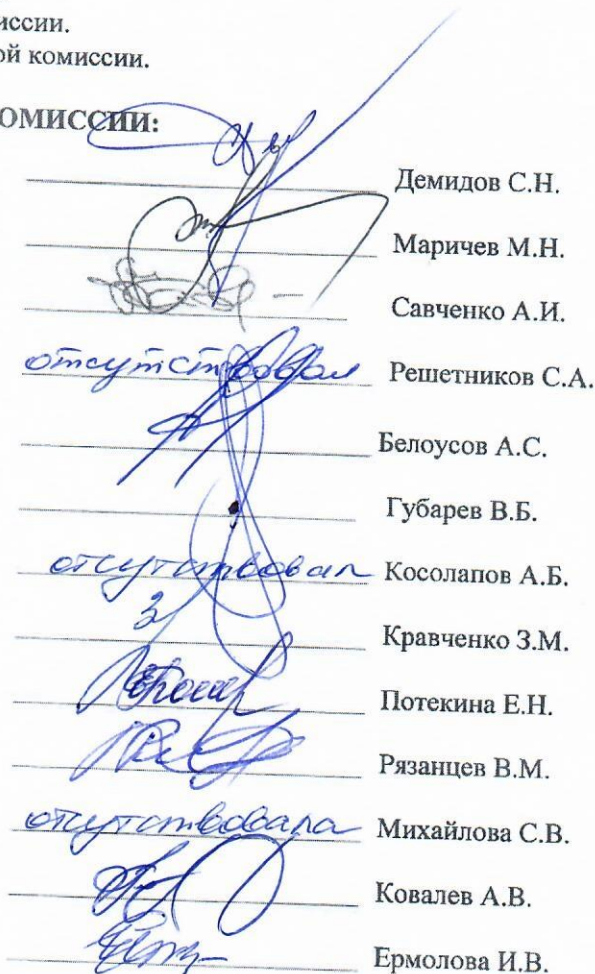 иссии.
ой комиссии.
ОМИССИИ:
Демидов С.Н.
Маричев М.Н.
Савченко А.И.
отсутствовал Решетников С.А.
Белоусов А.С.
Губарев В.Б.
отсутствовал Косолапов А.Б.
Кравченко З.М.
Потекина Е.Н.
Рязанцев В.М.
отсутствовала Михайлова С.В.
Ковалев А.В.
Ермолова И.В.